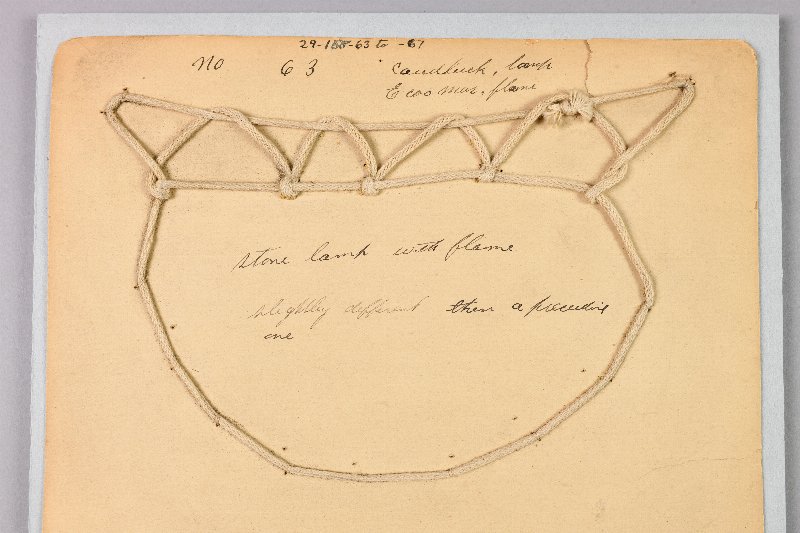 29-155-63 to -67
No 63 Caudluck, lamp
Ecoomar. flame
stone lamp with flame
slightly different then a preceding
one